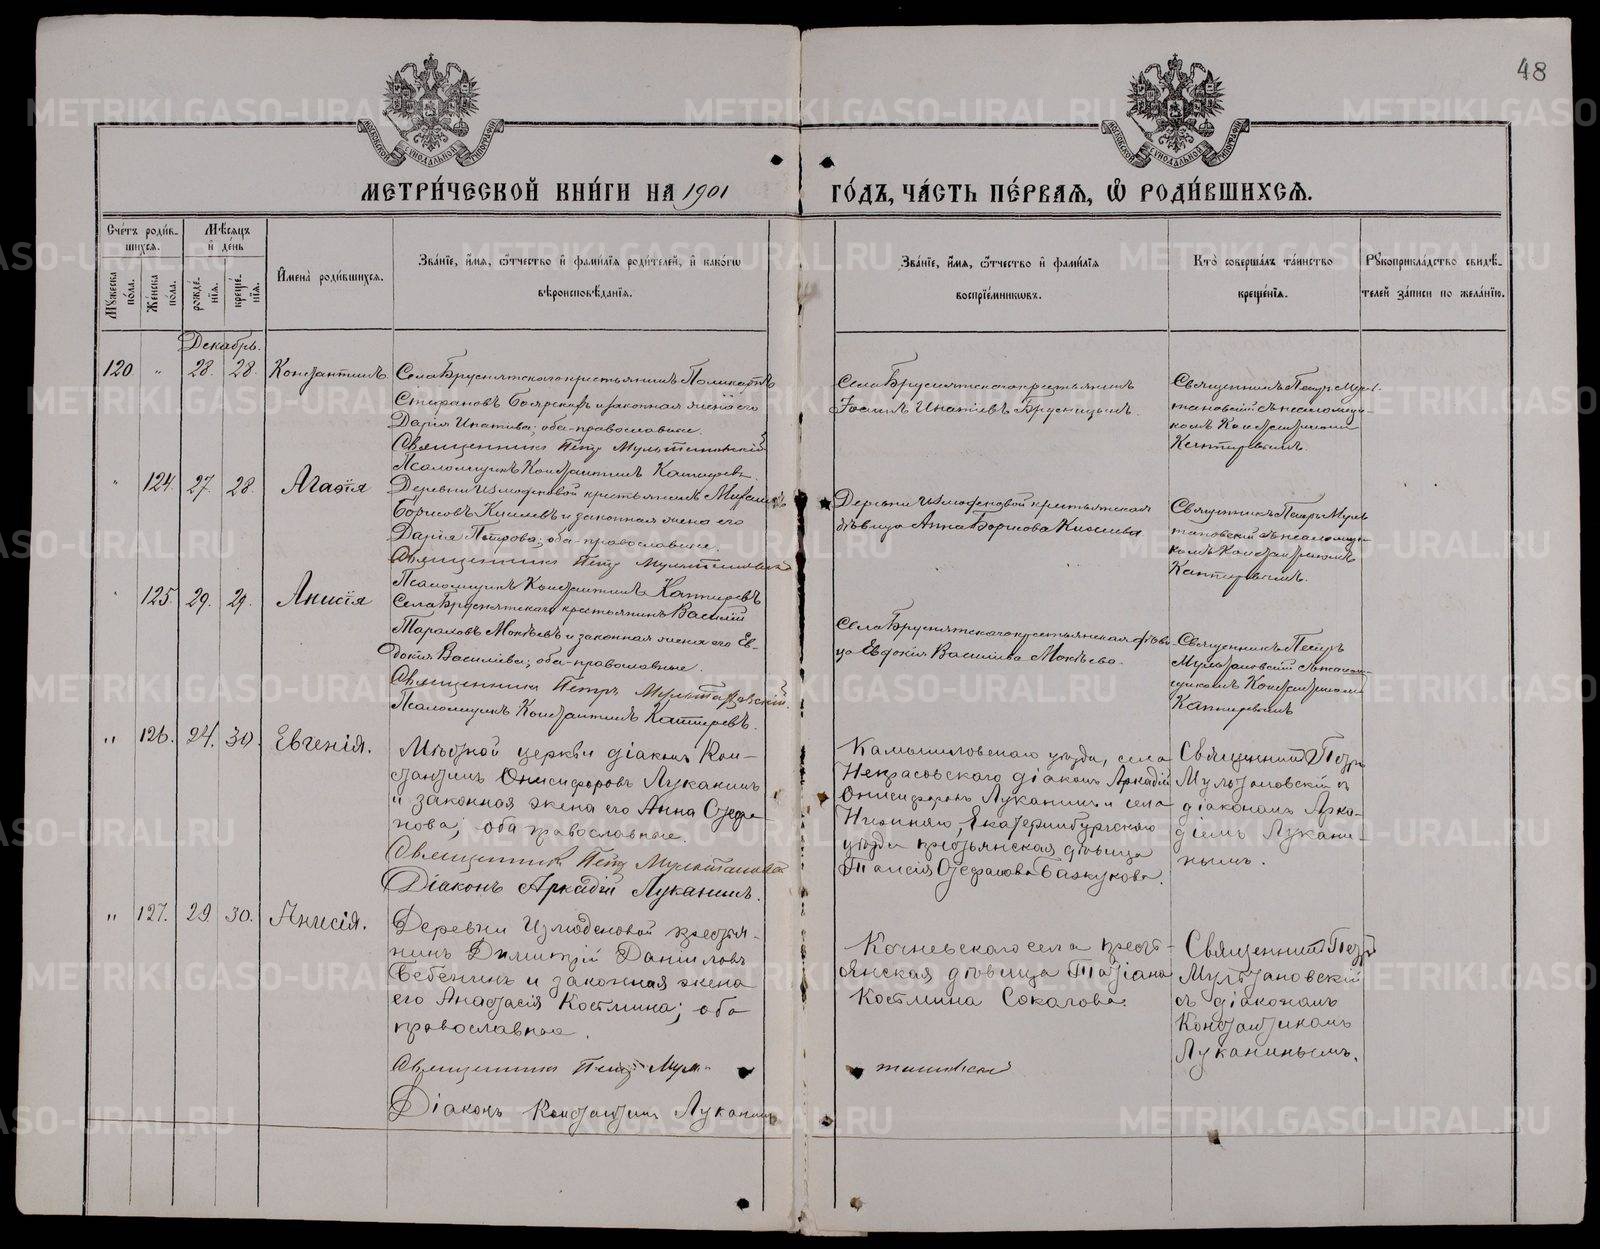 48
МЕТРИ́ЧЕСКОЙ КНИ́ГИ НА 1901
ГО́ДЪ, ЧА́СТЬ ПЕ́РВАѦ, Ѽ РОДИ́ВШИХСѦ.
Сче́тъ роди́в-
шихсѧ.
Мѣ́сѧцъ
и҆ де́нь
Мꙋ́жеска по́ла.
Же́нска по́ла.
рожде́-
нїѧ.
креще́-
нїѧ.
И҆мена̀ роди́вшихсѧ.
Зва́нїе, и҆́мѧ, ѻ҆́тчество и҆ фами́лїѧ роди́телей, и҆ како́гѡ
вѣроисповѣ́данїѧ.
Зва́нїе, и҆́мѧ, ѻ҆́тчество и҆ фами́лїѧ
воспрїе́мникѡвъ.
Кто̀ соверша́лъ та́инство
креще́нїѧ.
Рꙋкоприкла́дство свидѣ́-
телей за́писи по жела́нїю.
Декабрь.
120 „ 28. 28. Константинъ.
Села Бруснятскаго крестьянинъ Поликарпъ
Стефановъ Боярскихъ и законная жена его
Дарія Ипатива; оба православные.
Священникъ Петръ Мультановскій
Псаломщикъ Константинъ Каптыревъ
Села Бруснятскаго крестьянинъ
Іоаннъ Ипатіевъ Брусницынъ.
Священникъ Петръ Муль-
тановскій съ псаломщи-
комъ Константиномъ
Каптыревымъ.
„ 124. 27. 28. Агафія
Деревни Измоденовой крестьянинъ Михаилъ
Борисовъ Киселевъ и законная жена его
Дарія Петрова; оба православные.
Священникъ Петръ Мультановскій
Псаломщикъ Константинъ Каптыревъ
Деревни Измоденовой крестьянская
дѣвица Анна Борисова Киселева
Священникъ Петръ Муль
тановскій съ псаломщи-
комъ Константиномъ
Каптыревымъ.
„ 125. 29. 29. Анисія
Села Бруснятскаго крестьянинъ Василій
Тарасовъ Мокѣевъ и законная жена его Ев-
докія Василіева; оба православные.
Священникъ Петръ Мультановскій.
Псаломщикъ Константинъ Каптыревъ.
Села Бруснятскаго крестьянская дѣви
ца Евдокія Василіева Мокѣева.
Священникъ Петръ
Мультановскій съ псалом-
щикомъ Константиномъ
Каптыревымъ
„ 126. 24. 30. Евгенія.
Мѣстной церкви діаконъ Кон-
стантинъ Онисифоровъ Луканинъ
и законная жена его Анна Стефа-
нова; оба православные.
Священникъ Петръ Мультановскій
Діаконъ Аркадій Луканинъ.
Камышловскаго уѣзда, села
Некрасовскаго діаконъ Аркадій
Онисифоровъ Луканинъ и села
Нижняго, Екатеринбургскаго
уѣзда крестьянская дѣвица
Таисія Стефанова Бажукова.
Священникъ Петръ
Мультановскій съ
діакономъ Арка-
діемъ Лукани-
нымъ.
„ 127. 29 30. Анисія.
Деревни Измоденовой крестья-
нинъ Димитрій Даниловъ
Бебенинъ и законная жена
его Анастасія Костмина; оба
православные.
Священникъ Петръ Муль-
тановскій
Діаконъ Константинъ Луканинъ
Кочневскаго села крест-
янская дѣвица Татіана
Костмина Соколова.
Священникъ Петръ
Мультановскій
съ діакономъ
Константиномъ
Луканинымъ.